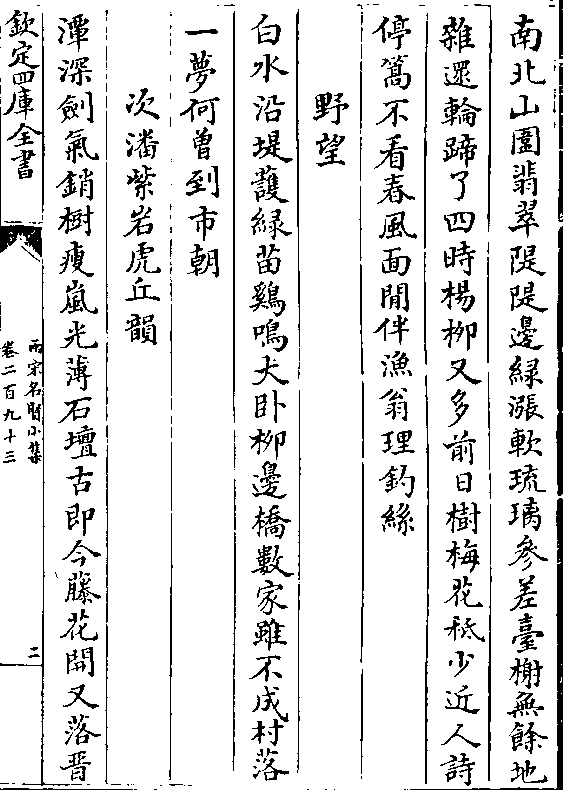 南北山圍翡翠隄隄邊綠漲軟琉璃參差臺榭無餘地
雜遝輪蹄了四時楊柳又多前日樹梅花秪少近人詩
停篙不看春風面閒伴漁翁理釣絲
野望
白水沿堤護綠苗鷄鳴犬卧柳邊橋數家雖不成村落
一夢何曾到市朝
次潘紫岩虎丘韻
潭深劍氣銷樹瘦嵐光薄石壇古即今藤花開又落晋
欽定四庫全書
兩宋名賢小集
卷二百九十三
二